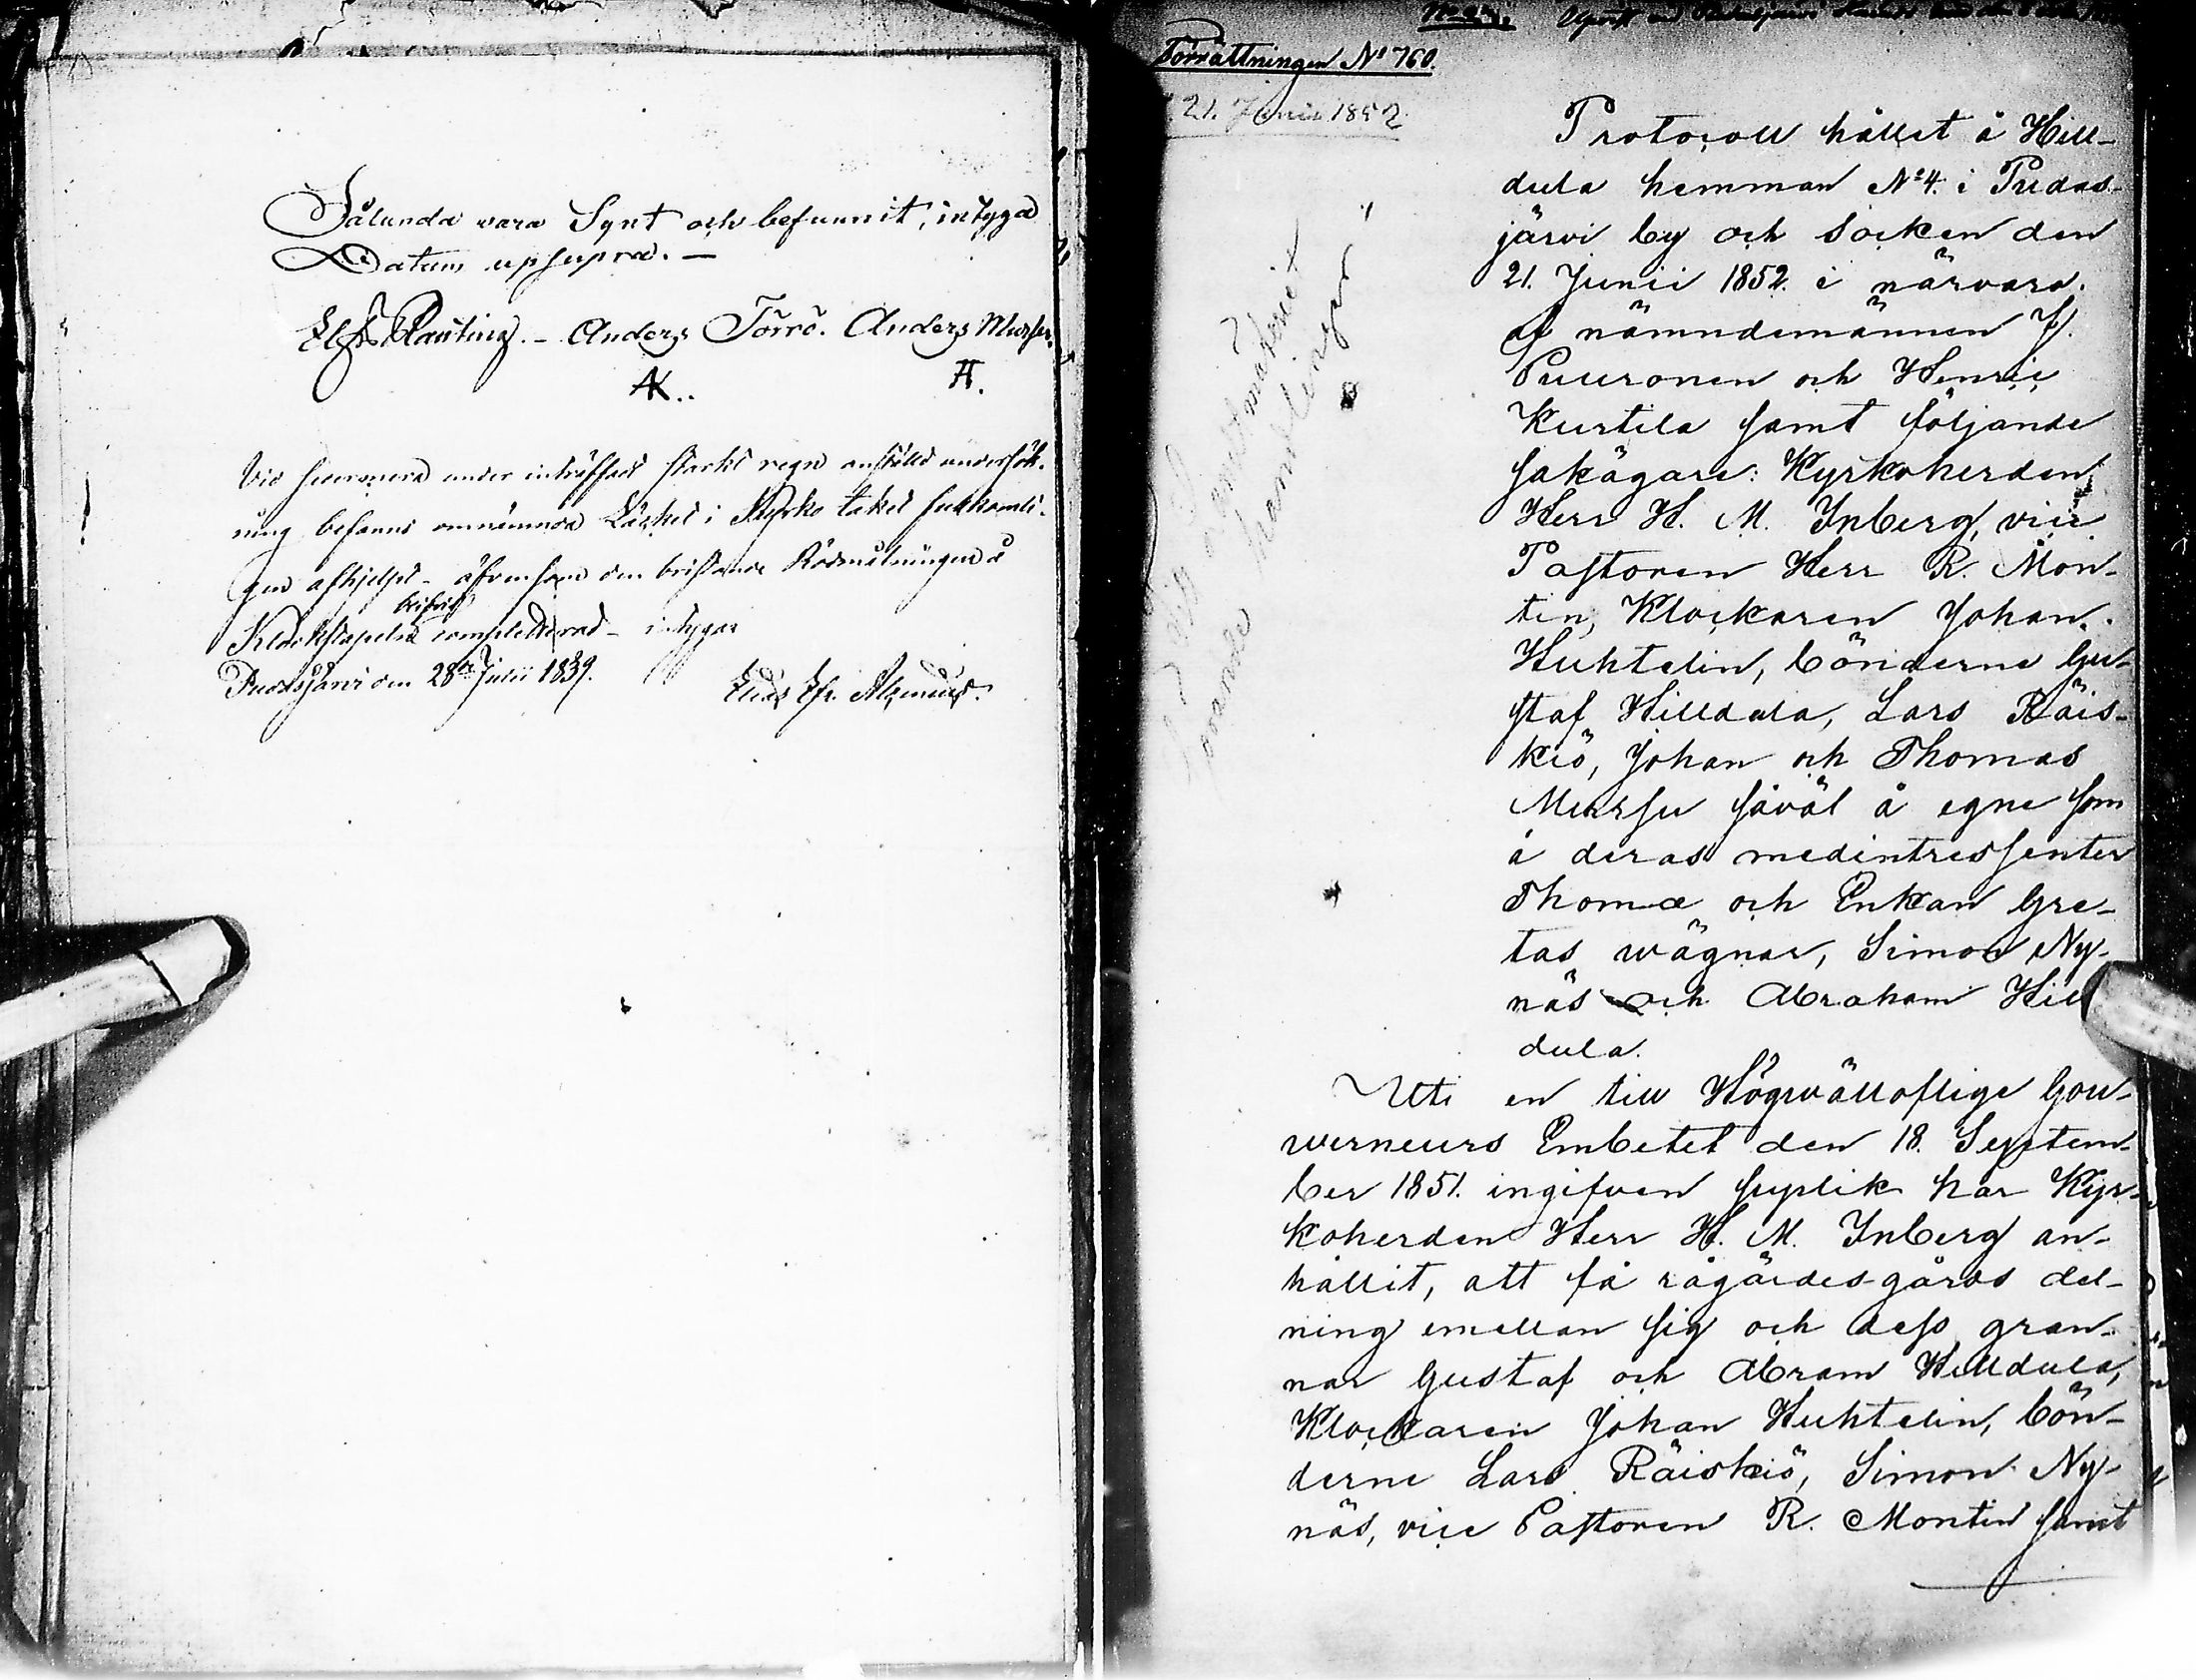 Sålunda vara Synt och befunnit, intyga
Datum upsupra. —
Anders Törrö. Anders Mursu.
AK.. A.
Vid sednare under inträffadt starkt regn anställd undersök-
ning befanns omnämnda Läckor i Kyrko taket fullkomli-
gen afhjelpt - äfvensom den bristande Rödmålningen å
Klockstapeln behörigt completterad - intygar
Pudasjärvi den 28de Julii 1839.
Förrättningen No 760.
21. Junii 1852
Protocoll hållet å Hill-
dula hemman No 4. i Pudas-
järvi by och socken den
21. Junii 1852. i närvaro.
af nämndemännen J.
Puuronen och Henric
Kurtila samt följande
sakägare: Kyrkoherden
Herr H. M. Inberg, vice
Pastoren Herr R. Mon-
tin, Klockaren Johan.
Huhtelin, bönderne Gu-
staf Hilldula, Lars Räis-
kiö, Johan och Thomas
Mursu såväl å egne som
å deras medintressenter
Thomæ och Enkan Gre-
tas wägnar, Simon Ny-
näs och Abraham Hill
dula.
Uti en till Högwällofliga Gou-
werneurs Embetet den 18. Septem-
ber 1851. ingifven suplik har Kyr-
koherden Herr H. M. Inberg an-
hållit, att få rågärdes-gårds del-
ning emellan sig och dess gran-
nar Gustaf och Abram Hilldula,
Klockaren Johan Huhtelin, bön-
derne Lars Räiskiö, Simon Ny-
näs, vice Pastoren R. Montin samt